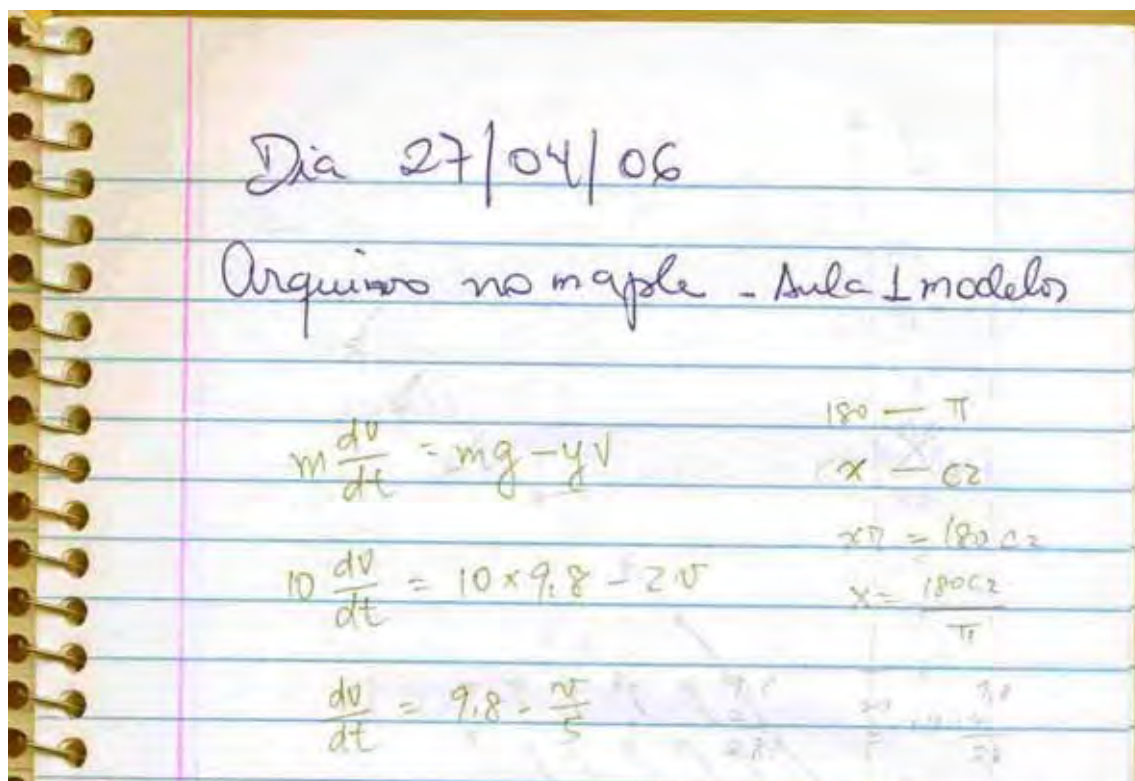 Dia 27/04/06
Arquivos no maple - Aula 1 modelos
m dv/dt = mg - yv
10 dv/dt = 10 x 9,8 - 2v
dv/dt = 9,8 - v/5
180 — π
x — c2
xπ = 180 c2
x = 180c2/π